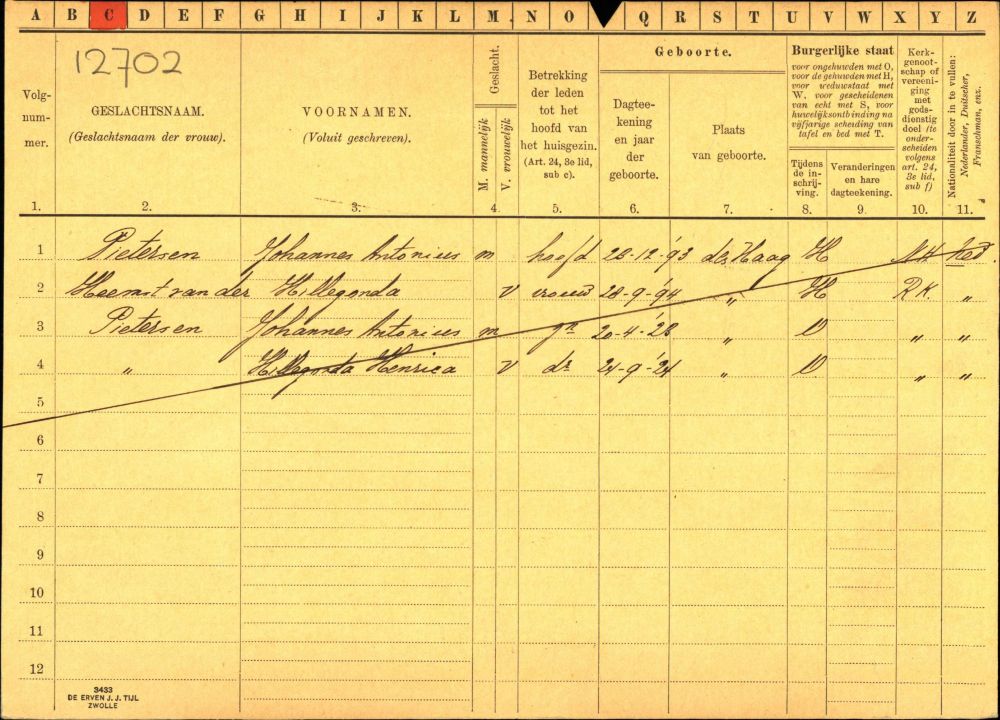 A B C D E F G H I J K L M N O Q R S T U V W X Y Z
12702
Volg-
num-
mer.
GESLACHTSNAAM.
(Geslachtsnaam der vrouw).
VOORNAMEN.
(Voluit geschreven).
Geslacht.
M. mannelijk
V. vrouwelijk
Betrekking
der leden
tot het
hoofd van
het huisgezin.
(Art. 24, 3e lid,
sub c).
Geboorte.
Dagtee-
kening
en jaar
der
geboorte.
Plaats
van geboorte.
Burgerlijke staat
voor ongehuwden met O,
voor de gehuwden met H,
voor weduwstaat met
W, voor gescheidenen
van echt met S, voor
huwelijksontbinding na
vijfjarige scheiding van
tafel en bed met T.
Tijdens
de in-
schrij-
ving.
Veranderingen
en hare
dagteekening.
Kerk-
genoot-
schap of
vereeni-
ging
met
gods-
dienstig
doel (te
onder-
scheiden
volgens
art. 24,
3e lid,
sub f)
Nationaliteit door in te vullen:
Nederlander, Duitscher,
Franschman, enz.
1. 2. 3. 4. 5. 6. 7. 8. 9. 10. 11.
1 Pietersen Johannes Antonius m hoofd 28-12-'93 den Haag H N.H. Ned.
2 Heemst van der Hillegonda v vrouw 28-9-'94 " H R.K. "
3 Pietersen Johannes Antonius m zn " O " "
4 " Hillegonda Henrica v dr 24-9-'24 " O " "
5
6
7
8
9
10
11
12
3433
DE ERVEN J. J. TIJL
ZWOLLE